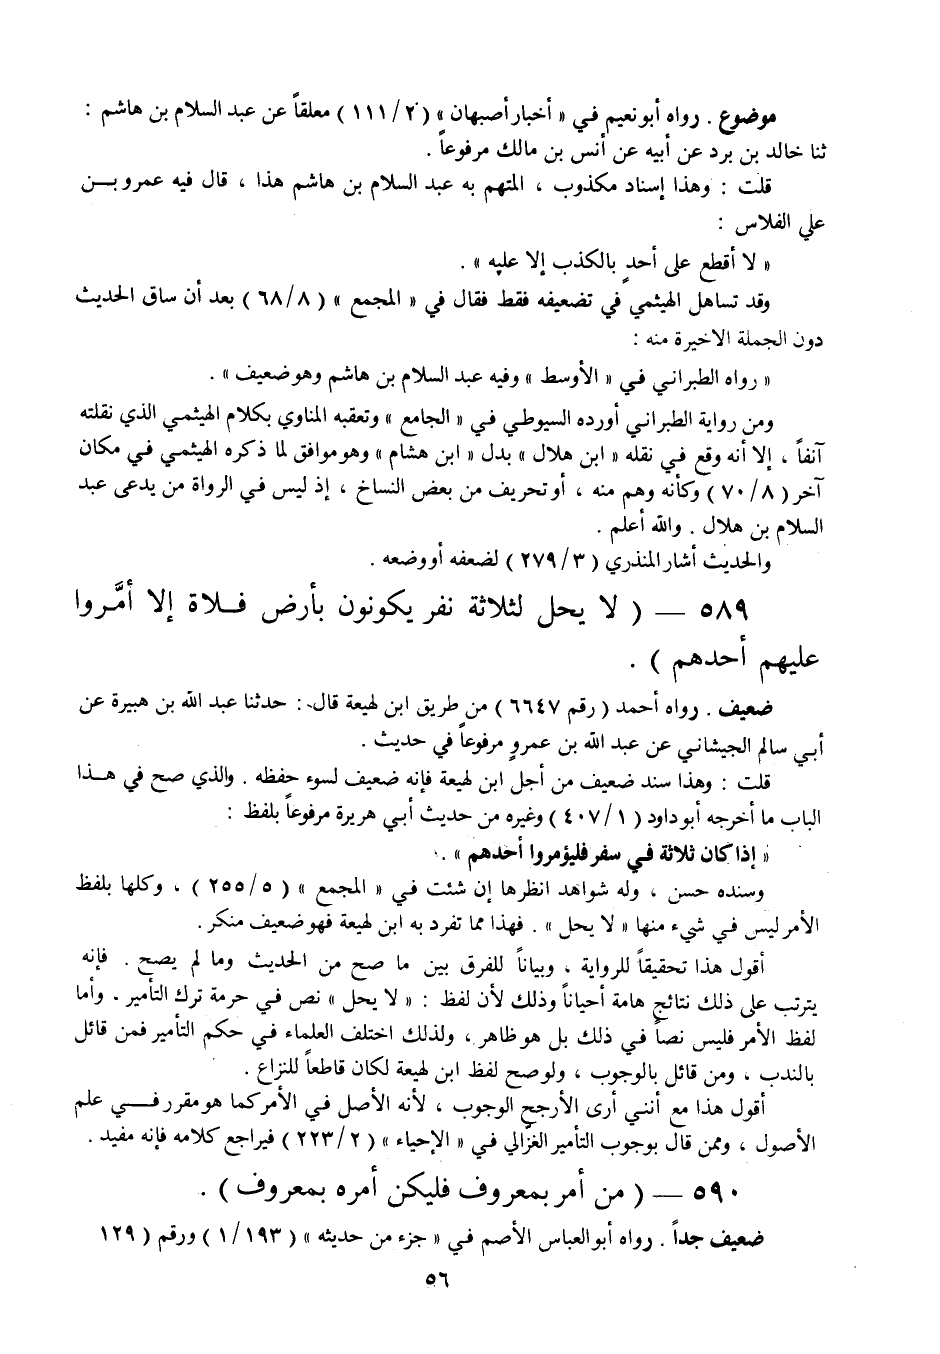 موضوع . رواه أبو نعيم في « أخبار أصبهان » ( ٢/ ١١١ ) معلقاً عن عبد السلام بن هاشم :
ثنا خالد بن برد عن أبيه عن أنس بن مالك مرفوعاً .
قلت : وهذا إسناد مكذوب ، المتهم به عبد السلام بن هاشم هذا ، قال فيه عمرو بــن
علي الفلاس :
« لا أقطع على أحدٍ بالكذب إلا عليه » .
وقد تساهل الهيثمي في تضعيفه فقط فقال في « المجمع » ( ٨/ ٦٨ ) بعد أن ساق الحديث
دون الجملة الاخيرة منه :
« رواه الطبراني في « الأوسط » وفيه عبد السلام بن هاشم وهو ضعيف » .
ومن رواية الطبراني أورده السيوطي في « الجامع » وتعقبه المناوي بكلام الهيثمي الذي نقلته
آنفاً ، إلا أنه وقع في نقله « ابن هلال » بدل « ابن هشام » وهو موافق لما ذكره الهيثمي في مكان
آخر ( ٨ /٧٠ ) وكأنه وهم منه ، أو تحريف من بعض النساخ ، إذ ليس في الرواة من يدعى عبد
السلام بن هلال . والله أعلم .
والحديث أشار المنذري ( ٣/ ٢٧٩ ) لضعفه أو وضعه .
٥٨٩ — ( لا يحل لثلاثة نفر يكونون بأرض فــلاة إلا أمَّروا
عليهم أحدهم ) .
ضعيف . رواه أحمد ( رقم ٦٦٤٧ ) من طريق ابن لهيعة قال : حدثنا عبد الله بن هبيرة عن
أبي سالم الجيشاني عن عبد الله بن عمرو مرفوعاً في حديث .
قلت : وهذا سند ضعيف من أجل ابن لهيعة فإنه ضعيف لسوء حفظه . والذي صح في هــذا
الباب ما أخرجه أبو داود ( ١/ ٤٠٧ ) وغيره من حديث أبي هريرة مرفوعاً بلفظ :
« إذا كان ثلاثة في سفر فليؤمروا أحدهم » .
وسنده حسن ، وله شواهد انظرها إن شئت في « المجمع » ( ٥/ ٢٥٥ ) ، وكلها بلفظ
الأمر ليس في شيء منها « لا يحل » . فهذا مما تفرد به ابن لهيعة فهو ضعيف منكر .
أقول هذا تحقيقاً للرواية ، وبياناً للفرق بين ما صح من الحديث وما لم يصح . فإنه
يترتب على ذلك نتائج هامة أحياناً وذلك لأن لفظ : « لا يحل » نص في حرمة ترك التأمير . وأما
لفظ الأمر فليس نصاً في ذلك بل هو ظاهر ، ولذلك اختلف العلماء في حكم التأمير فمن قائل
بالندب ، ومن قائل بالوجوب ، ولو صح لفظ ابن لهيعة لكان قاطعاً للنزاع .
أقول هذا مع أنني أرى الأرجح الوجوب ، لأنه الأصل في الأمر كما هو مقرر فــي علم
الأصول ، وممن قال بوجوب التأمير الغزالي في « الإحياء » ( ٢/ ٢٢٣ ) فيراجع كلامه فإنه مفيد .
٥٩٠ — ( من أمر بمعروف فليكن أمره بمعروف ) .
ضعيف جداً . رواه أبو العباس الأصم في « جزء من حديثه » ( ١٩٣/ ١ ) ورقم ( ١٢٩
٥٦